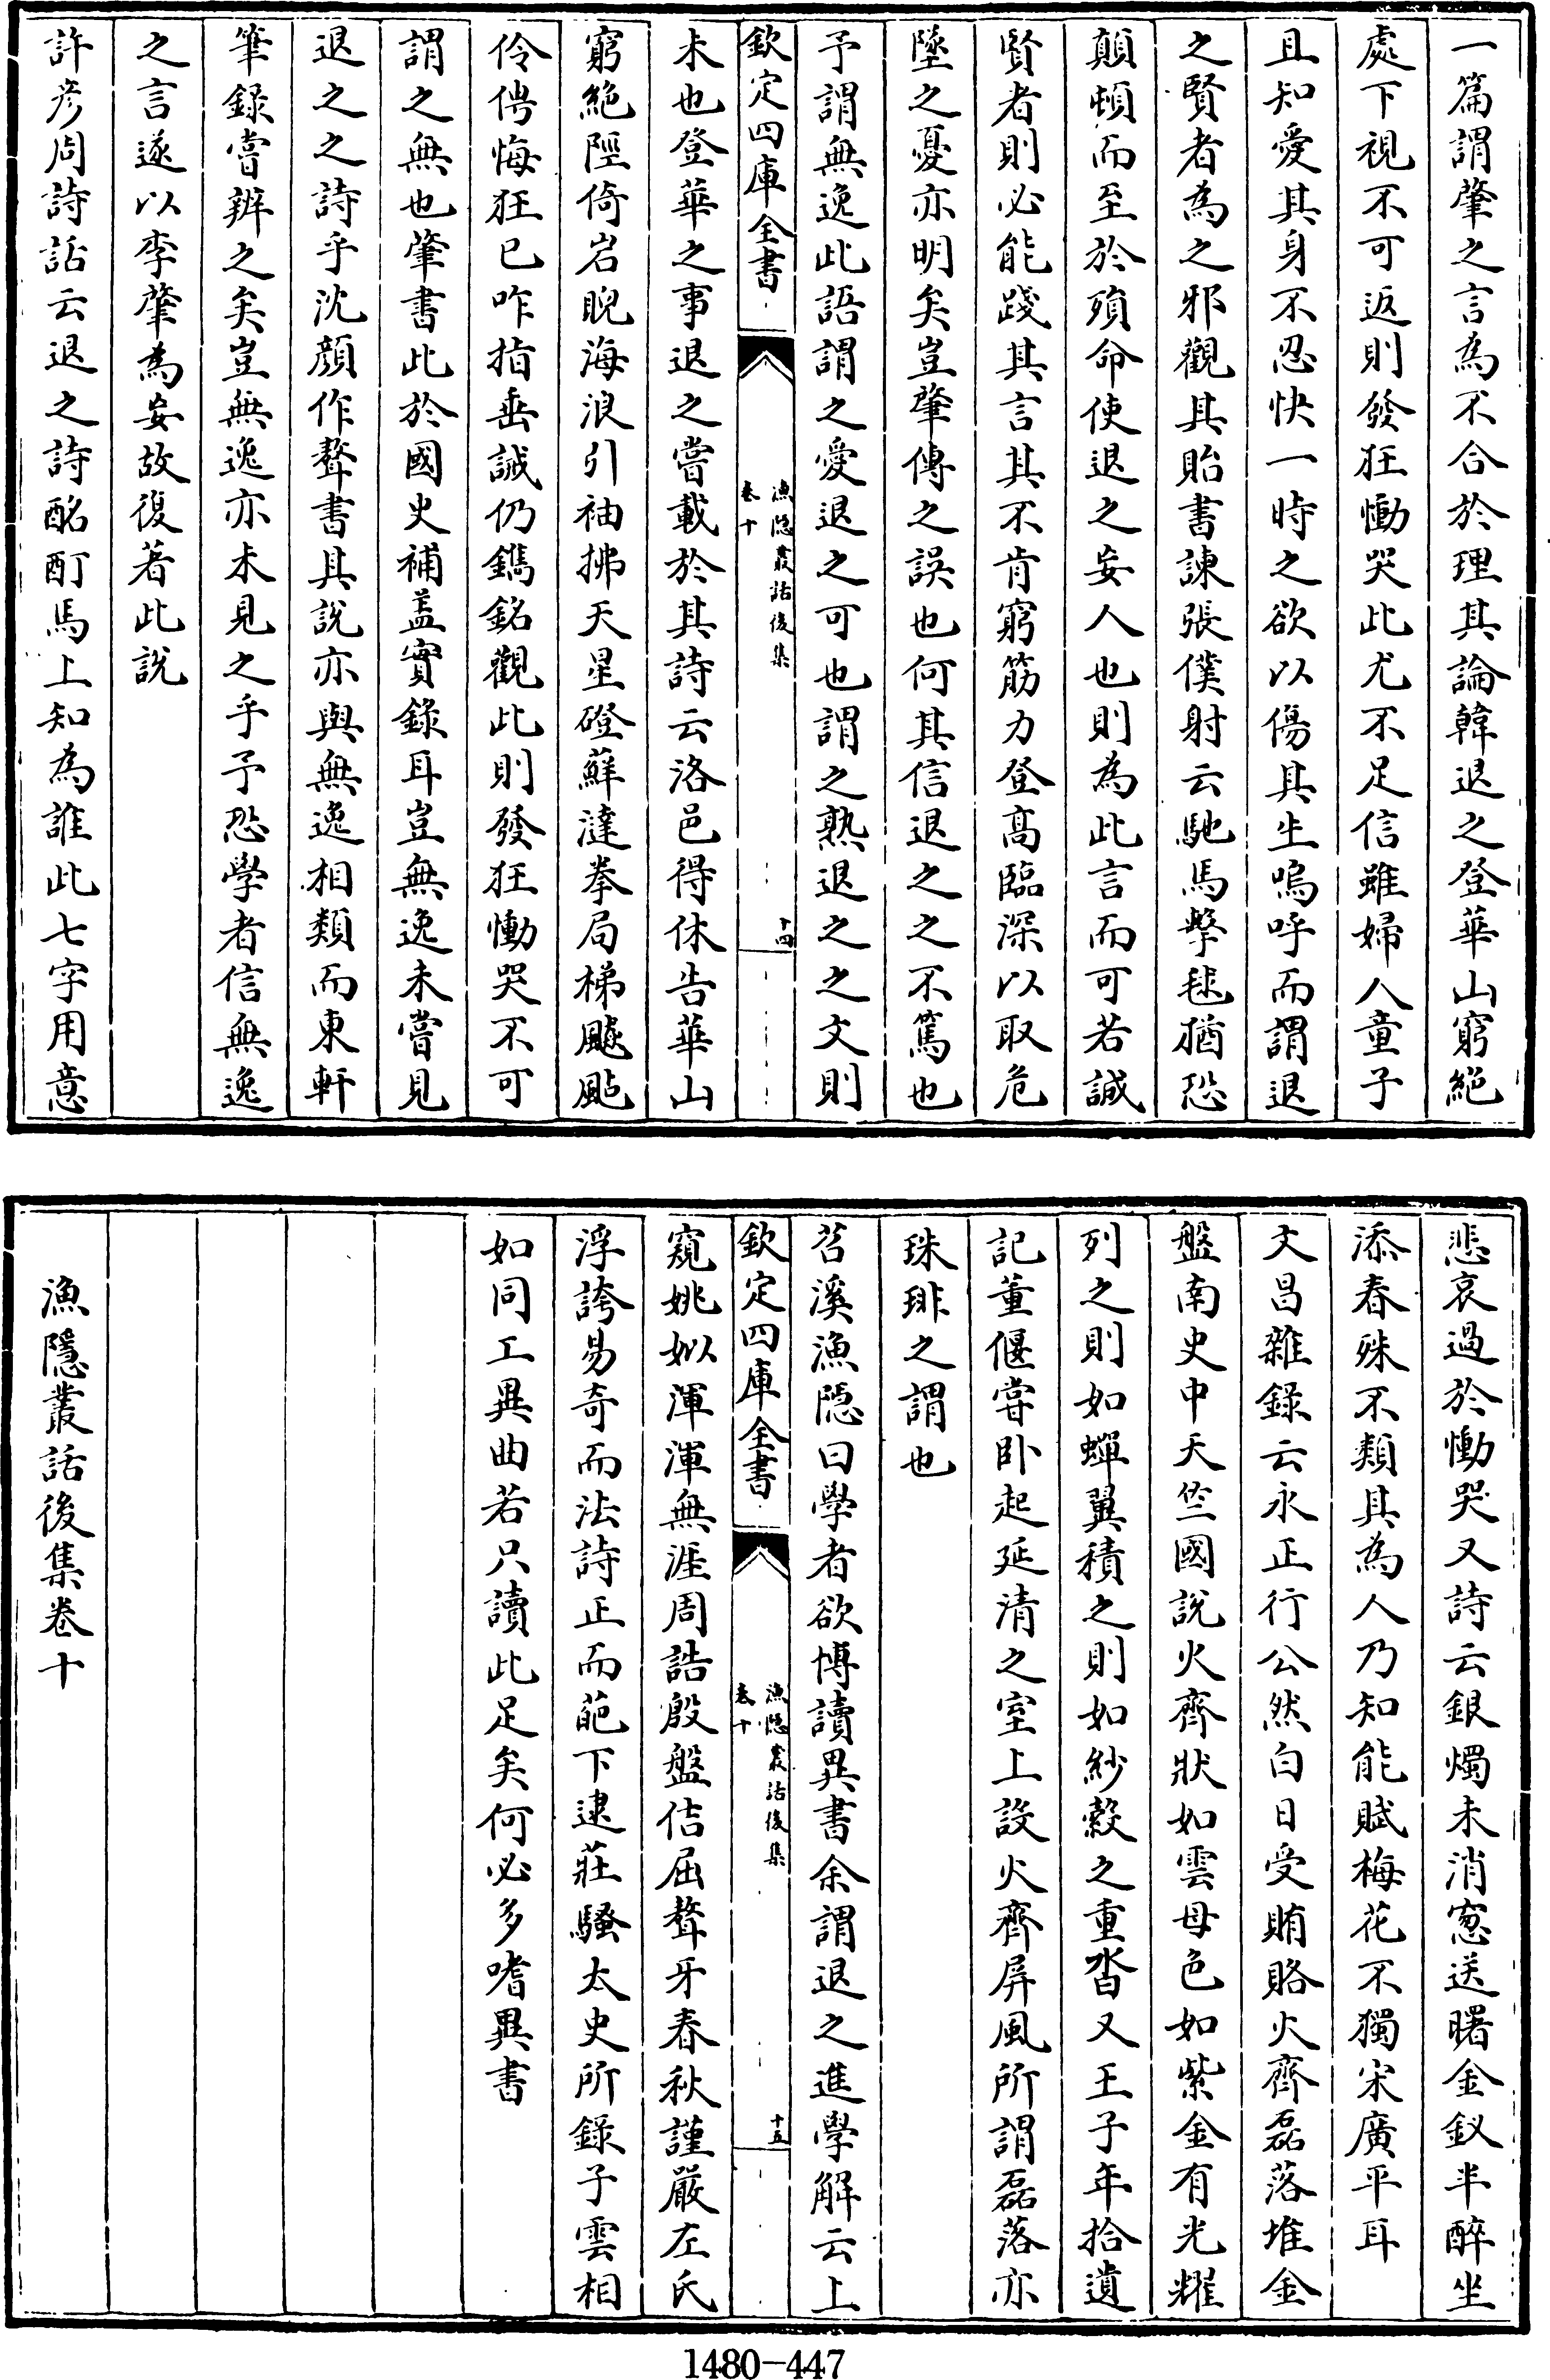 一篇謂肇之言為不合於理其論韓退之登華山窮絶
處下視不可返則發狂慟哭此尤不足信雖婦人童子
且知愛其身不忍快一時之欲以傷其生嗚呼而謂退
之賢者為之邪觀其貽書諫張僕射云馳馬擊毬猶恐
顛頓而至於殞命使退之妄人也則為此言而可若誠
賢者則必能踐其言其不肯窮筋力登高臨深以取危
墜之憂亦明矣豈肇傳之誤也何其信退之之不篤也
予謂無逸此語謂之愛退之可也謂之熟退之之文則
欽定四庫全書
漁隱叢話後集
卷十
十四
未也登華之事退之嘗載於其詩云洛邑得休告華山
窮絶陘倚岩睨海浪引袖拂天星磴蘚澾拳局梯飈颭
伶俜悔狂已咋指垂誡仍鐫銘觀此則發狂慟哭不可
謂之無也肇書此於國史補盖實錄耳豈無逸未嘗見
退之之詩乎沈顔作聱書其說亦與無逸相類而東軒
筆錄嘗辨之矣豈無逸亦未見之乎予恐學者信無逸
之言遂以李肇為妄故復著此說
許彦周詩話云退之詩酩酊馬上知為誰此七字用意
悲哀過於慟哭又詩云銀燭未消窻送曙金釵半醉坐
添春殊不類其為人乃知能賦梅花不獨宋廣平耳
文昌雜錄云永正行公然白日受賄賂火齊磊落堆金
盤南史中天竺國說火齊狀如雲母色如紫金有光耀
列之則如蟬翼積之則如紗縠之重沓又王子年拾遺
記董偃嘗卧起延清之室上設火齊屏風所謂磊落亦
珠琲之謂也
苕溪漁隱曰學者欲博讀異書余謂退之進學解云上
欽定四庫全書
漁隱叢話後集
卷十
十五
窺姚姒渾渾無涯周誥殷盤佶屈聱牙春秋謹嚴左氏
浮誇易奇而法詩正而葩下逮莊騷太史所錄子雲相
如同工異曲若只讀此足矣何必多嗜異書
漁隱叢話後集卷十
1480-447